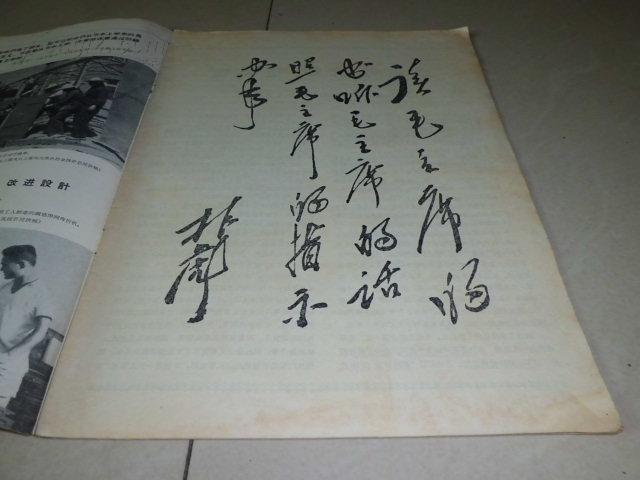 读毛主席的
书听毛主席的话
照毛主席的指示
办事
林彪
改进設計